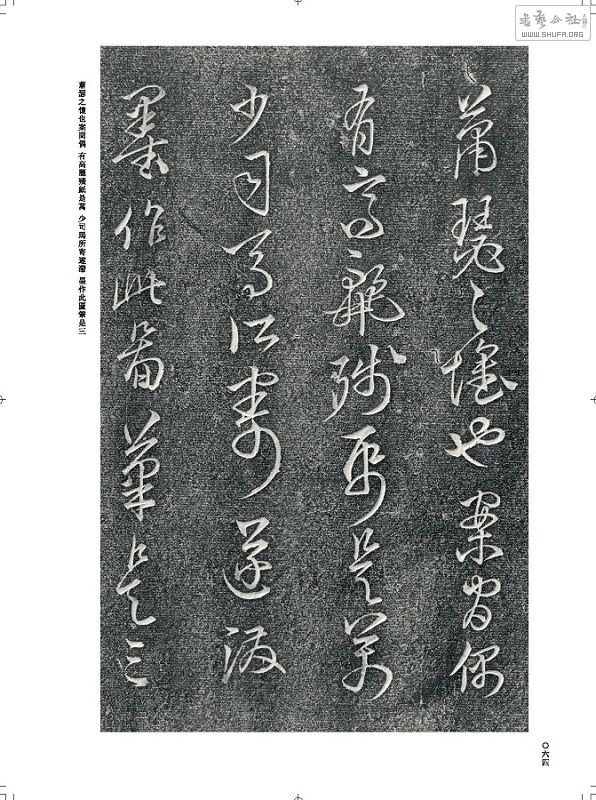 書藝公社
WWW.SHUFA.ORG
蕭瑟之懷也案間偶
有高麗殘紙是萬
少司馬所寄遂潑
墨作此圖筆是三
蕭瑟之懷也案間偶 有高麗殘紙是萬 少司馬所寄遂潑 墨作此圖筆是三
〇六四